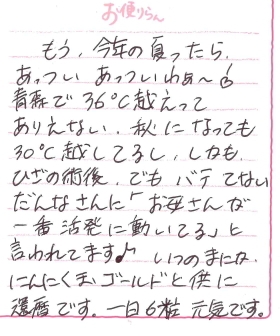 お便りらん
もう、今年の夏ったら、
あっつい あっついわぁ〜
青森で36℃越えって
ありえない、秋になっても
30℃越してるし、しかも
ひざの術後、でもバテてない
だんなさんに「お母さんが
一番活発に動いてる」と
言われてます♪ いつのまにか
にんにく玉ゴールドと供に
還暦です。一日6粒 元気です。